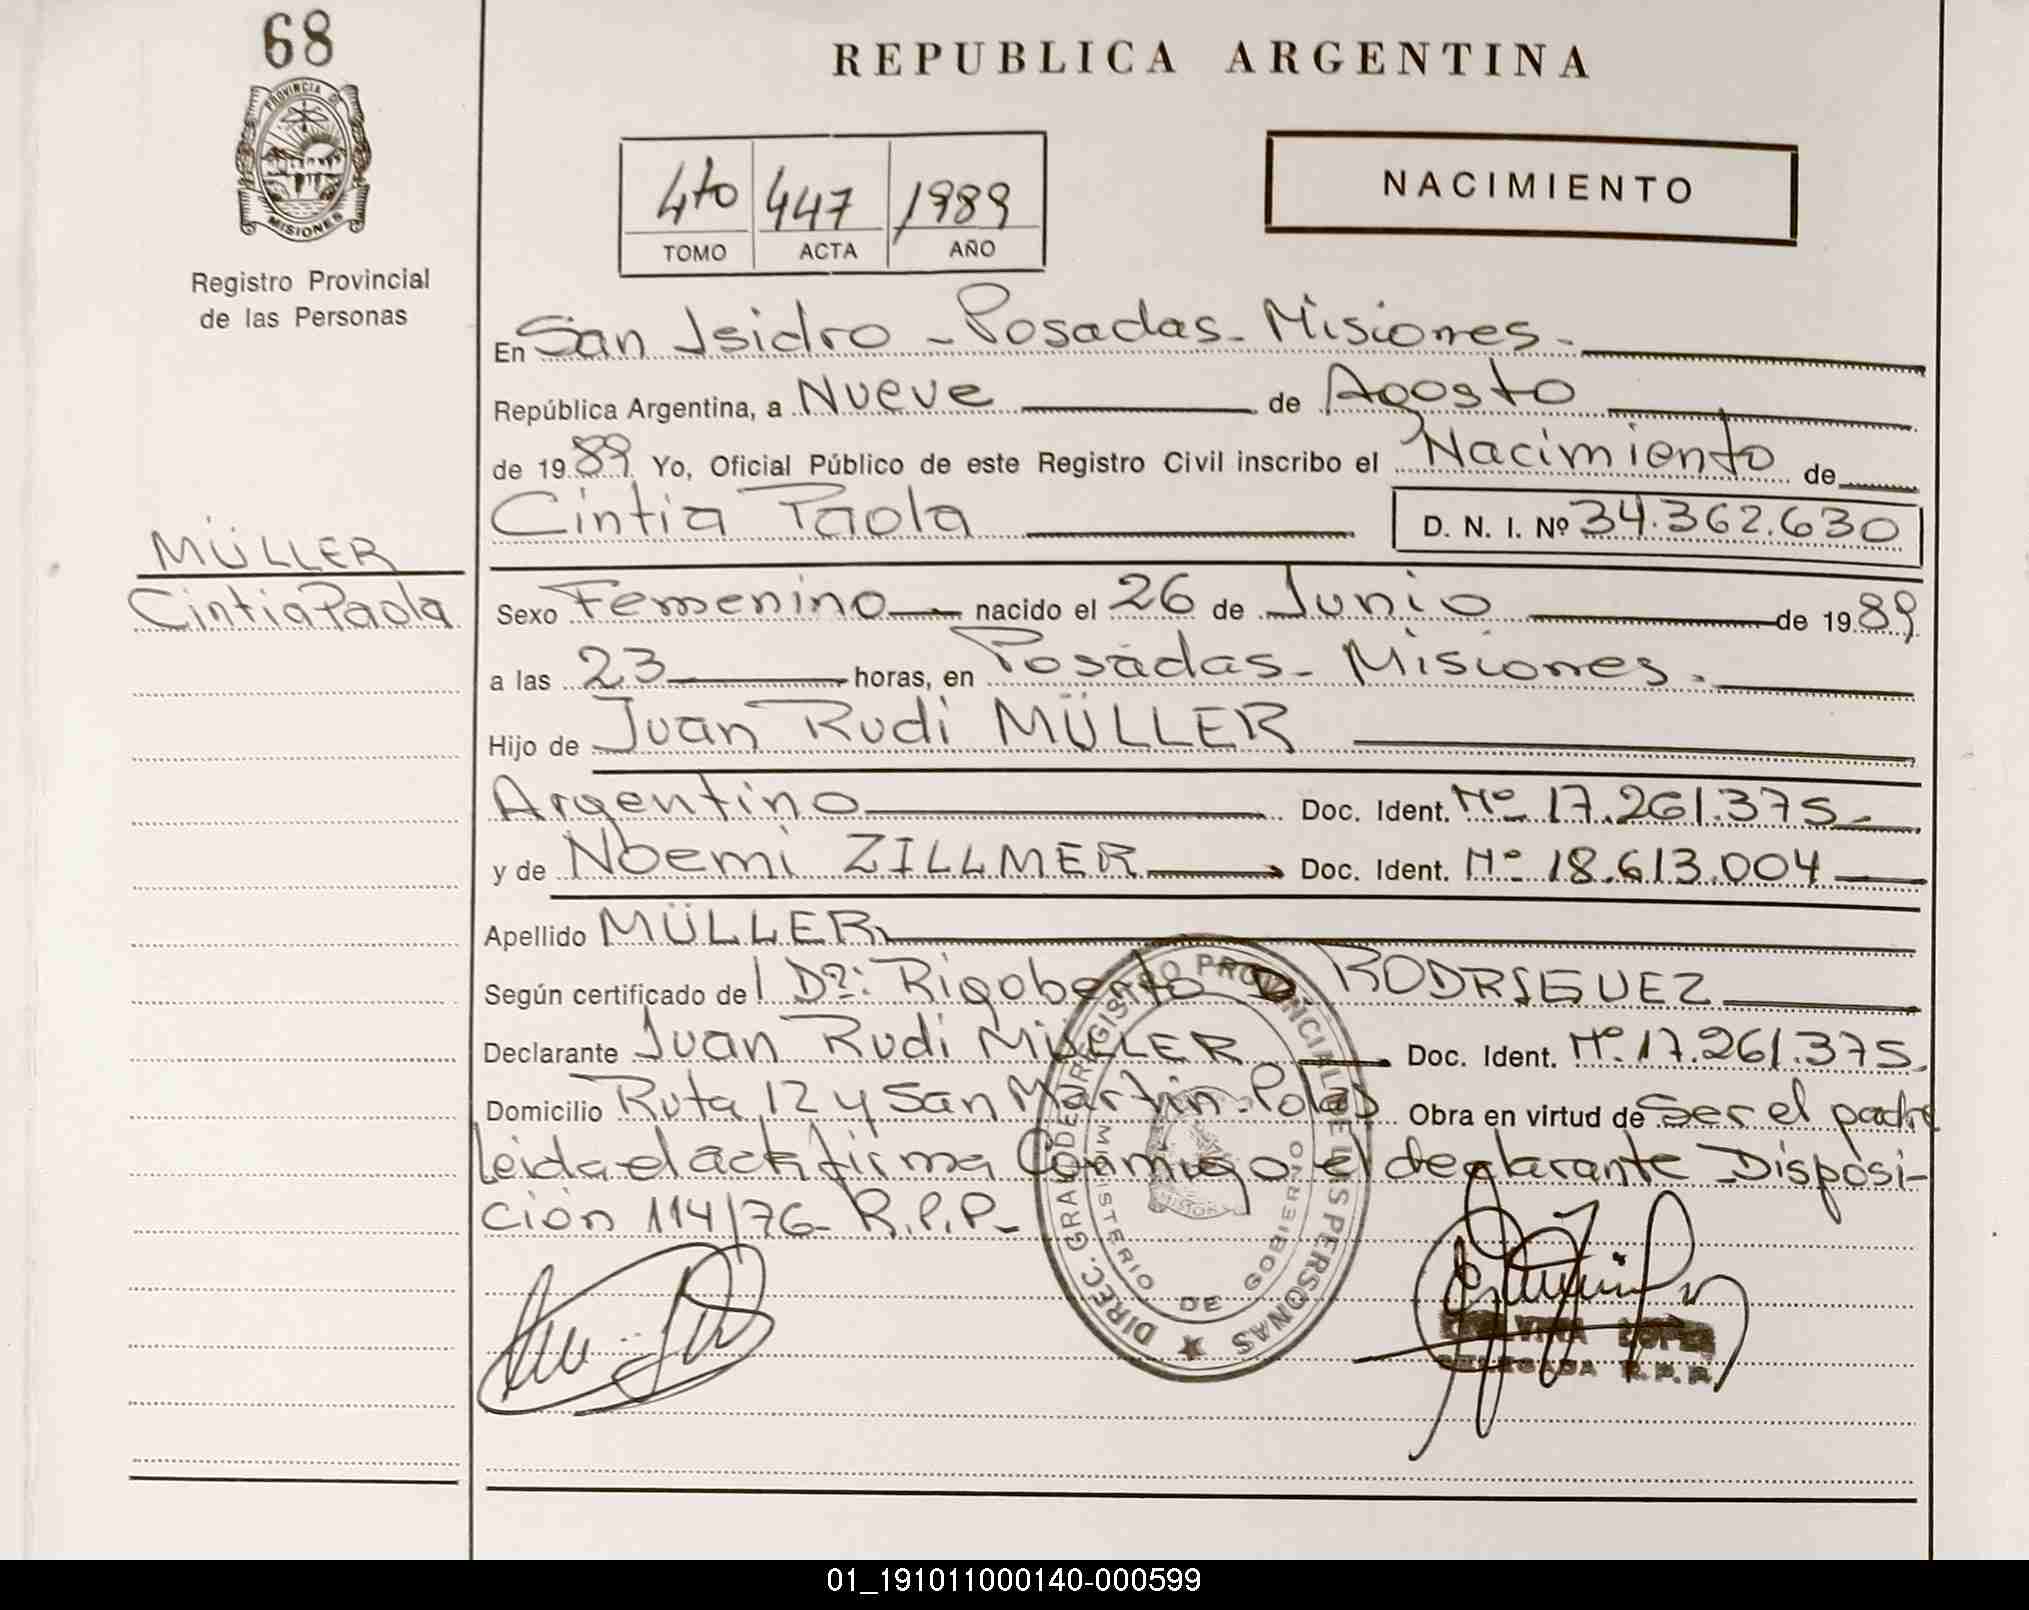 68
PROVINCIA DE
MISIONES
Registro Provincial
de las Personas
MÜLLER
Cintia Paola
REPUBLICA ARGENTINA
4to 447 1989
TOMO ACTA AÑO
NACIMIENTO
En San Isidro - Posadas - Misiones.
República Argentina, a Nueve de Agosto
de 1989 Yo, Oficial Público de este Registro Civil inscribo el Nacimiento de
Cintia Paola D. N. I. Nº 34.362.630
Sexo Femenino nacido el 26 de Junio de 1989
a las 23 horas, en Posadas - Misiones.
Hijo de Juan Rudi MÜLLER
Argentino Doc. Ident. Nº 17.261.375
y de Noemi ZILLMER Doc. Ident. Nº 18.613.004
Apellido MÜLLER
Según certificado del Dr: Rigoberto D. RODRIGUEZ
Declarante Juan Rudi MÜLLER Doc. Ident. Nº 17.261.375
Domicilio Ruta 12 y San Martin - Pdas Obra en virtud de Ser el padre
Leida el acta firma Conmigo el declarante Disposi-
ción 114/76 - R.P.P-
DIREC. GRAL. DE REGISTRO PROVINCIAL DE LAS PERSONAS
MINISTERIO DE GOBIERNO
LOPEZ
DELEGADA R.P.P.
01_191011000140-000599